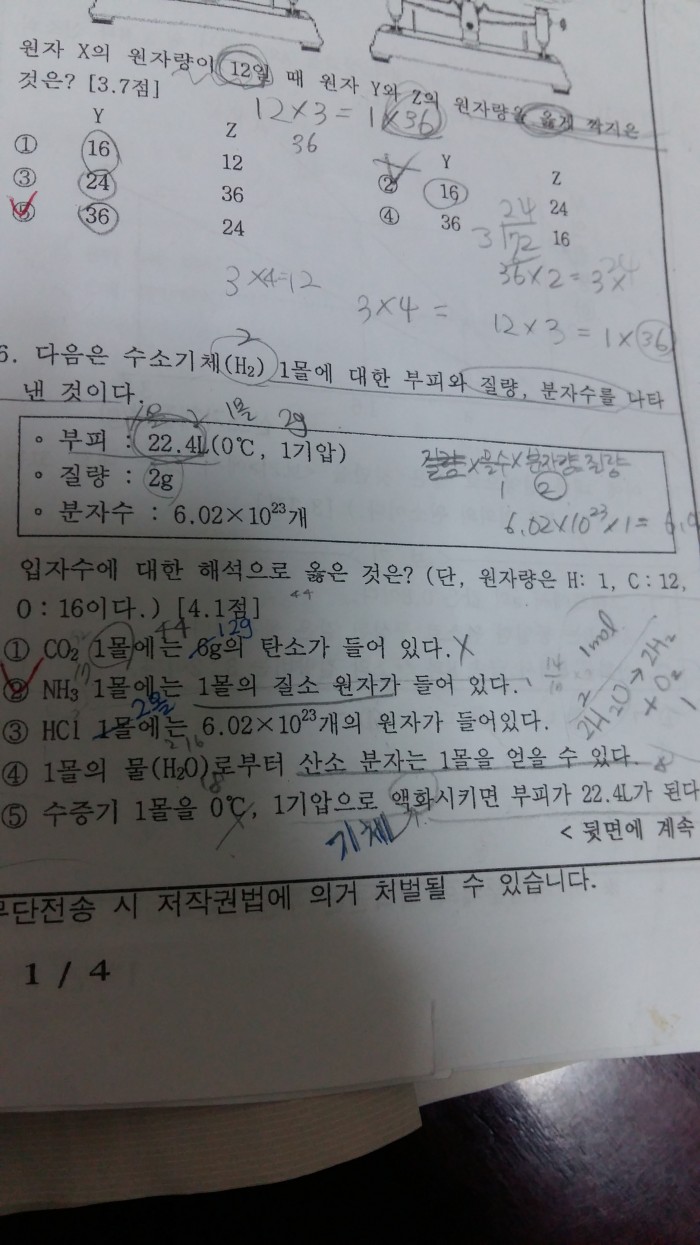 원자 X의 원자량이 12일 때 원자 Y와 Z의 원자량을 옳게 짝지은
것은? [3.7점]
12×3 = 1×36
36
Y Z Y Z
① 16 12 ② 16 24
③ 24 36 ④ 36 16
⑤ 36 24
24
3 72
36×2 = 3×
3×4=12
3×4 =
12×3 = 1×36
2
6. 다음은 수소기체(H₂) 1몰에 대한 부피와 질량, 분자수를 나타
낸 것이다.
1몰 1몰 2g
∘ 부피 : 22.4L(0℃, 1기압)
∘ 질량 : 2g
∘ 분자수 : 6.02×10²³개
×몰수×분자량 질량
1 2
6.02×10²³×1=
입자수에 대한 해석으로 옳은 것은? (단, 원자량은 H: 1, C:12,
O:16이다.) [4.1점]
44
44 12g
① CO₂ 1몰에는 6g의 탄소가 들어 있다. X
② NH₃ 1몰에는 1몰의 질소 원자가 들어 있다.
③ HCl 1몰에는 6.02×10²³개의 원자가 들어있다.
④ 1몰의 물(H₂O)로부터 산소 분자는 1몰을 얻을 수 있다.
⑤ 수증기 1몰을 0℃, 1기압으로 액화시키면 부피가 22.4L가 된다
기체
14
1mol
2
2H₂O → 2H₂
+ O₂
1
< 뒷면에 계속
무단전송 시 저작권법에 의거 처벌될 수 있습니다.
1 / 4